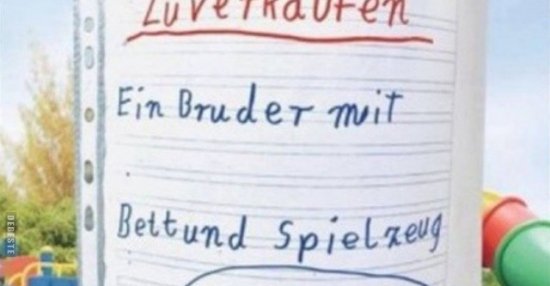 Zu verkaufen
Ein Bruder mit
Bett und Spielzeug
DEBESTE